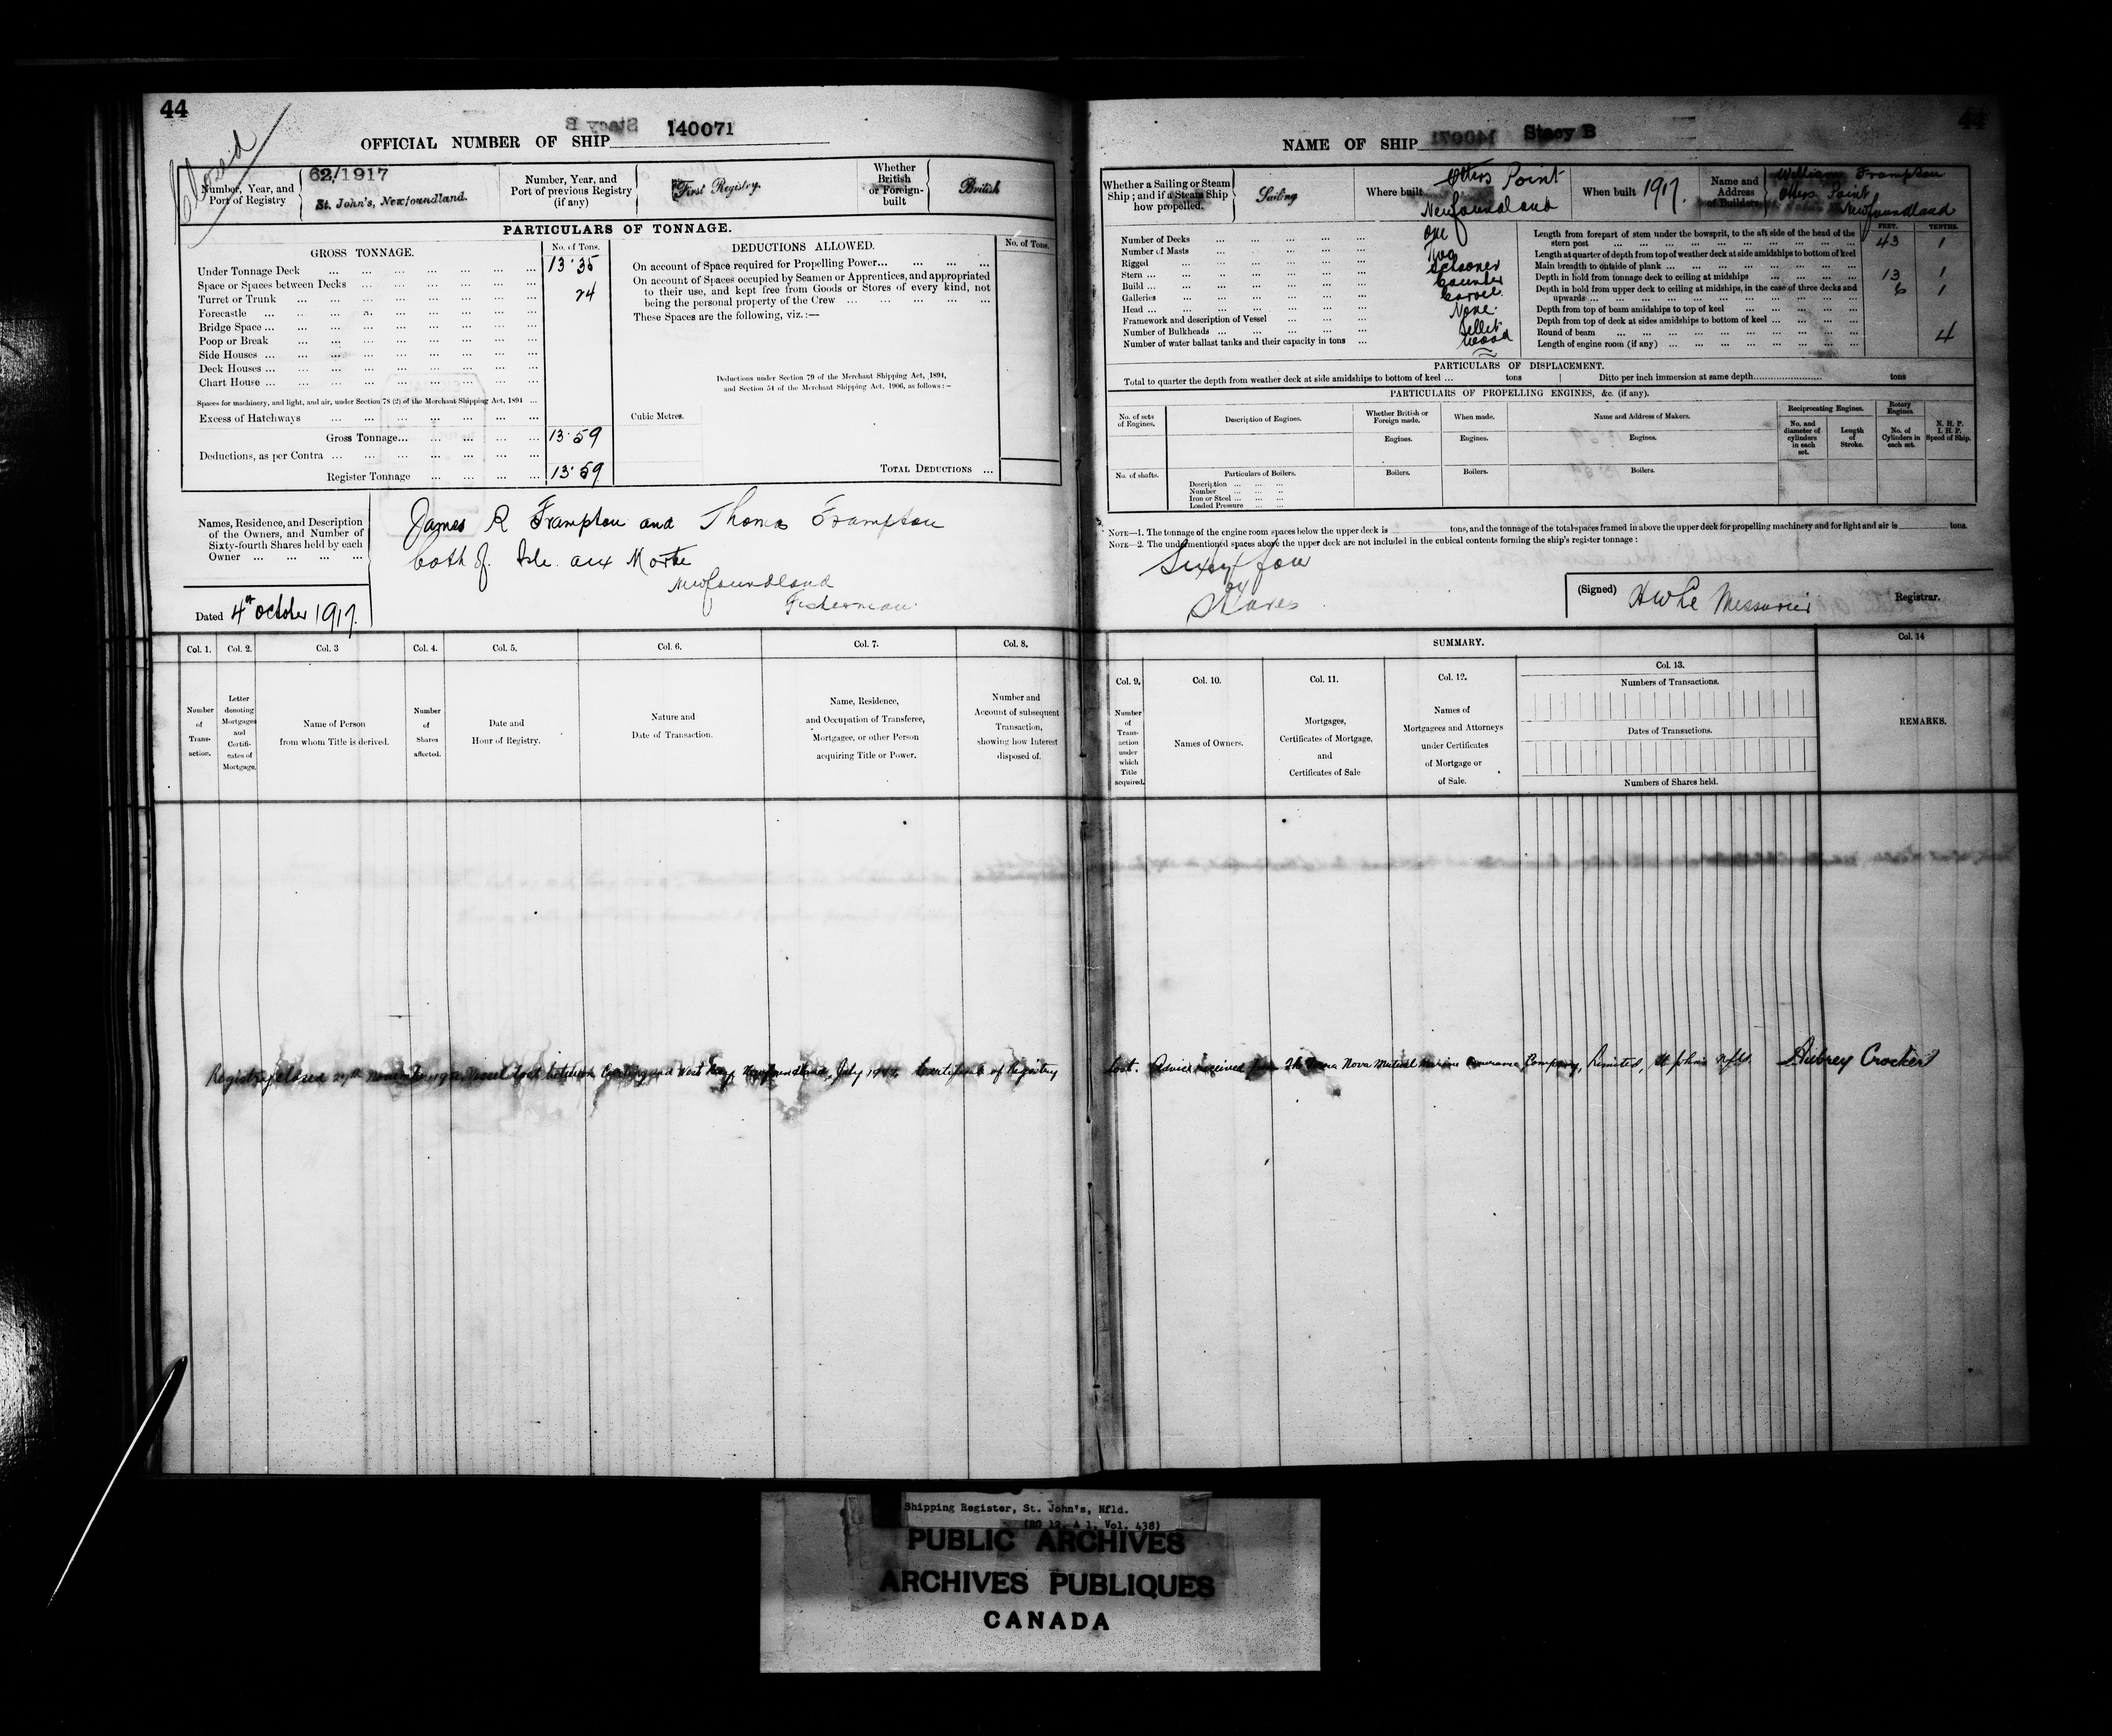 44
Closed
OFFICIAL NUMBER OF SHIP 140071
Number, Year, and Port of Registry
62/1917
St. John's, Newfoundland.
Number, Year, and Port of previous Registry (if any)
First Registry.
Whether British or Foreign-built
British
PARTICULARS OF TONNAGE.
GROSS TONNAGE.
No. of Tons.
Under Tonnage Deck 13.35
Space or Spaces between Decks
Turret or Trunk 24
Forecastle
Bridge Space
Poop or Break
Side Houses
Deck Houses
Chart House
Spaces for machinery, and light, and air, under Section 78 (2) of the Merchant Shipping Act, 1894
Excess of Hatchways
Gross Tonnage 13.59
Deductions, as per Contra
Register Tonnage 13.59
DEDUCTIONS ALLOWED.
No. of Tons.
On account of Space required for Propelling Power
On account of Spaces occupied by Seamen or Apprentices, and appropriated
to their use, and kept free from Goods or Stores of every kind, not
being the personal property of the Crew
These Spaces are the following, viz.:—
Deductions under Section 79 of the Merchant Shipping Act, 1894,
and Section 54 of the Merchant Shipping Act, 1906, as follows:—
Cubic Metres.
TOTAL DEDUCTIONS
Names, Residence, and Description
of the Owners, and Number of
Sixty-fourth Shares held by each
Owner
James R Frampton and Thomas Frampton
both of Isle aux Morte
Newfoundland
Fishermen
Dated 4th October 1917.
Col. 1.
Number of Transaction.
Col. 2.
Letter denoting Mortgages and Certificates of Mortgage.
Col. 3
Name of Person from whom Title is derived.
Col. 4.
Number of Shares affected.
Col. 5.
Date and Hour of Registry.
Col. 6.
Nature and Date of Transaction.
Col. 7.
Name, Residence, and Occupation of Transferee, Mortgagee, or other Person acquiring Title or Power.
Col. 8.
Number and Account of subsequent Transaction, showing how Interest disposed of.
Registry closed November Vessel lost between and West Newfoundland, July Certificate of Registry
44
NAME OF SHIP Stacy B
Whether a Sailing or Steam Ship; and if a Steam Ship how propelled.
Sailing
Where built
Otters Point
Newfoundland
When built 1917.
Name and Address of Builders
William Frampton
Otters Point
Newfoundland
Number of Decks One
Number of Masts Two
Rigged Schooner
Stern Counter
Build Carvel
Galleries None
Head Billet
Framework and description of Vessel Wood
Number of Bulkheads
Number of water ballast tanks and their capacity in tons
FEET. TENTHS.
Length from forepart of stem under the bowsprit, to the aft side of the head of the
stern post 43 1
Length at quarter of depth from top of weather deck at side amidships to bottom of keel
Main breadth to outside of plank 13 1
Depth in hold from tonnage deck to ceiling at midships 6 1
Depth in hold from upper deck to ceiling at midships, in the case of three decks and
upwards
Depth from top of beam amidships to top of keel
Depth from top of deck at sides amidships to bottom of keel
Round of beam 4
Length of engine room (if any)
PARTICULARS OF DISPLACEMENT.
Total to quarter the depth from weather deck at side amidships to bottom of keel tons Ditto per inch immersion at same depth tons
PARTICULARS OF PROPELLING ENGINES, &c. (if any).
No. of sets of Engines.
Description of Engines.
Whether British or Foreign made.
When made.
Name and Address of Makers.
Reciprocating Engines.
Rotary Engines
N. H. P.
I. H. P.
Speed of Ship.
No. and diameter of cylinders in each set.
Length of Stroke.
No. of Cylinders in each set.
Engines. Engines. Engines.
No. of shafts.
Particulars of Boilers.
Boilers. Boilers. Boilers.
Description
Number
Iron or Steel
Loaded Pressure
NOTE—1. The tonnage of the engine room spaces below the upper deck is tons, and the tonnage of the total spaces framed in above the upper deck for propelling machinery and for light and air is tons.
NOTE—2. The undermentioned spaces above the upper deck are not included in the cubical contents forming the ship's register tonnage:
Sixty four
Shares
(Signed) H W Le Messurier Registrar.
SUMMARY.
Col. 9.
Number of Transaction under which Title acquired.
Col. 10.
Names of Owners.
Col. 11.
Mortgages, Certificates of Mortgage, and Certificates of Sale
Col. 12.
Names of Mortgagees and Attorneys under Certificates of Mortgage or of Sale.
Col. 13.
Numbers of Transactions.
Dates of Transactions.
Numbers of Shares held.
Col. 14
REMARKS.
lost. Advice received from The Terra Nova Mutual Marine Insurance Company, Limited, St John's Nfld. Aubrey Crocker
Shipping Register, St. John's, Nfld.
(RG 12, A 1, Vol. 438)
PUBLIC ARCHIVES
ARCHIVES PUBLIQUES
CANADA